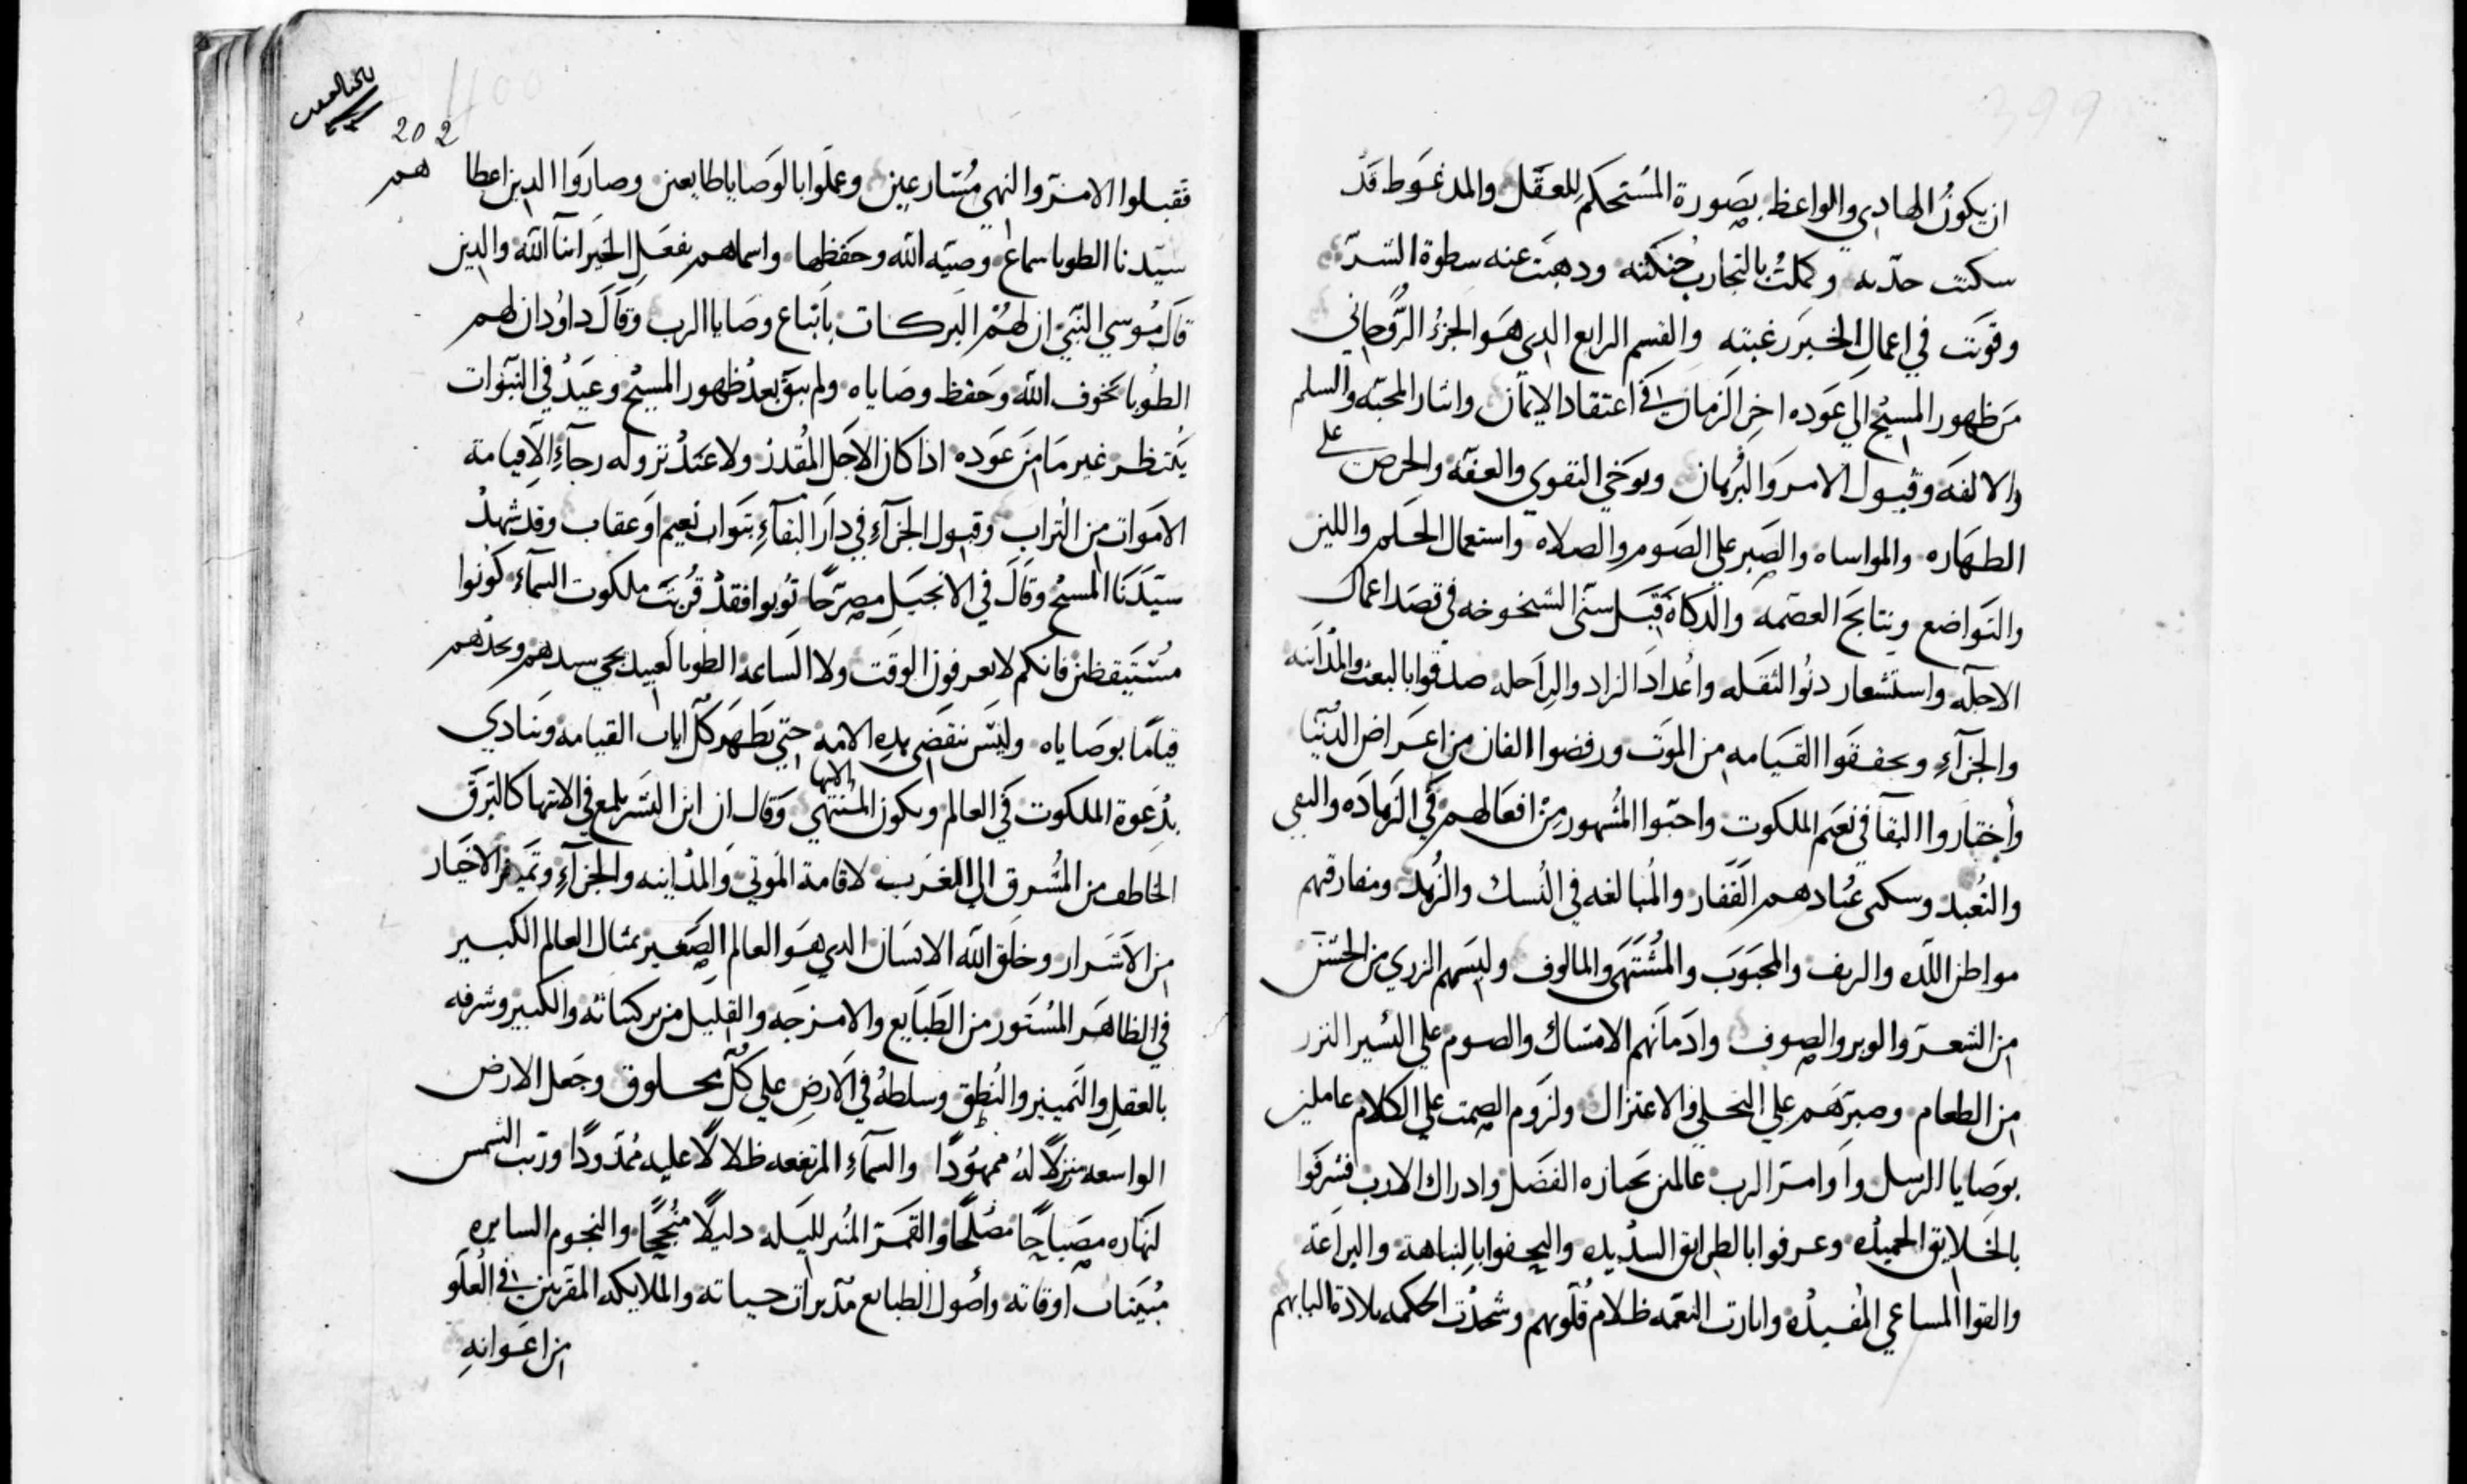 399
ان يكونُ الهادي والواعظ بصورة المُستحكم للعقل والمدغوط قَد
سكنت حدّته وكملتُ بالتجاربُ حُنكته ودهبت عنه سطوة الشرّ
وقويت في اعمال الخير رغبته والقسم الرابع الدي هَوا الجزءُ الرُّوحاني
مَن ظهور المسيح الي عَوده اخِر الزمان في اعتقاد الايمان واثار المحبّه والسلم
والالفَه وقبول الامر وَالبُرهان وتوخي التقوي والعفّه والحرص علي
الطهاره والمواساه والصبر علي الصَوم والصلاه واستعمال الحَلم واللين
والتَواضع ونتايَج العصَمه والدكاة قبَل سنّ الشخوخه في قصَد اعمال
الاجله واستشعار دنُوا النقَله واعُدادَ الزاد والراَحله صدقوا بالبعث والمُدَاَينه
والجزآءِ وتحققَوا القيَامه من الموَت ورفضوا الفان من اعَراض الدُنيا
وأختاروا البقآ في نعَيم الملكوت واحبّوا المُشهور مِنْ افعَالهمِ في الزَهادَه والتقي
والتُعبد وسكنى عبُادهم القَفار والمُبالغه في النُسك والزُهد ومفارقتهم
مواطن اللّده والريف والمحبَوَب والمُشتَهَى والمالوف ولبسَهم الزري من الخشن
من الشعر والوبر والصوف وادَمَانهم الامسَاك والصوم علي اليُسير النزر
من الطعام وصبرَهم علي التخلي والاعتزال ولزَوم الصمت علي الكلام عاملين
بوصَايا الرسل واَوامر الرب عالمين بحيازه الفضَل وادراك الادب فشرفَوا
بالخَلايق الحميدُه وعرفوا بالطرايق السدُيده والتحفوا بالنباهة والبراَعة
والقوا المساعي المُفيدُه وانارت النعَمه ظلامُ قُلوبهم وشحدُت الحكمه بلادة البابهم
400
202
فقبلوا الامر والنهي مُسارعين وعَملوا بالوَصايا طايعين وصارَوا الدين اعطاهم
سيّدنا الطوبا سماع وصيّه الله وحَفظها واسماهم بفعَل الخيَر ابنآ الله والدين
قال مُوسي النّبي ان لهُم البركات باَتباع وصَايا الرب وقَالَ داوُد ان لهم
الطُوبا بخوف الله وَحَفظ وصَاياه ولم يبقَ بعدُ ظهور المسيُح وعيَدُ في النبَوات
يُنتظر غير مَا من عَوده ادا كان الاجَل المُقدر ولا عَندُ نزوله رجآءِ الا قيامة
الاموات من التراب وقبول الجزآءِ في دارَ البقآءِ بثواب نعيم اوَ عقاب وقد شهِدُ
سيّدَنَا المسيح وقَالَ في الانجيل مصرّحًا تُوبوا فقدْ قرُبَت ملكوت السمآء كُونوا
مُستيَقظين فانكم لا تعرفون الوقَت ولا السَاعه الطوبا لعَبيد يجي سيدهم ويجدُهم
قيامًا بوصَاياه وليسَ تنقضَي هده الامه حتي تظهَر كلّ ايات القيامه وينادي
بدُعوة الملكوت في العالم ويكون المُنتهي الانتها وقال ان ابن البشَر يلمع في الانتها كالبَرق
الخاطف من المُشرق الي الغَرب لاقامة الموتي والمدُاينه والجزآءِ وتَميز الاخيَار
من الاَشَرار وخلق الله الانسَان الدي هوَ العالم الصَغير بمثال العالم الكبير
في الظاهَر المُستَور من الطبَايع والامزجَه والقليل من بركباته والكبير وشرفه
بالعقل والتَمييز والنُطق وسلطهُ في الاَرض علي كلّ مخلوق وجَعل الارض
الواسعه منزلًا لهُ ممهُودًا والسمآءِ المرتفعه ظلالًا عليه ممُدودًا ورتب الشمس
لنَهاره مصَباحًا مصُلحًا والقمَر المنُير لليَله دليلًا مُنجحًا والنجوم السايره
مُبيَنات اوقاته وأصُول الطبايع مدَبرات حياته والملايكه المقربين في العُلَو
من اعَوانهِ